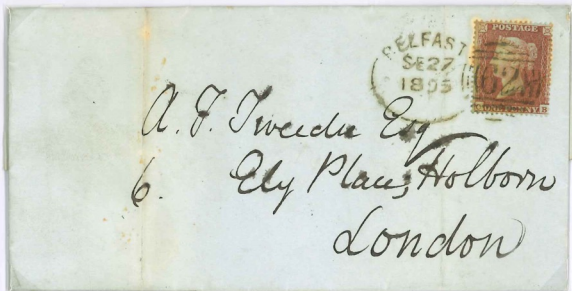 BELFAST
SE 27
POSTAGE
62
A. F. Tweedie Esq
6. Ely Place, Holborn
London